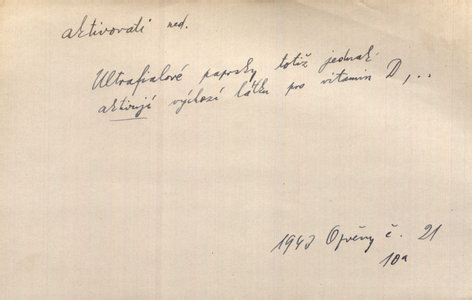 aktivovati ned.
Ultrafialové paprsky totiž jednak
aktivují výchozí látku pro vitamin D,..
č. 21
10a